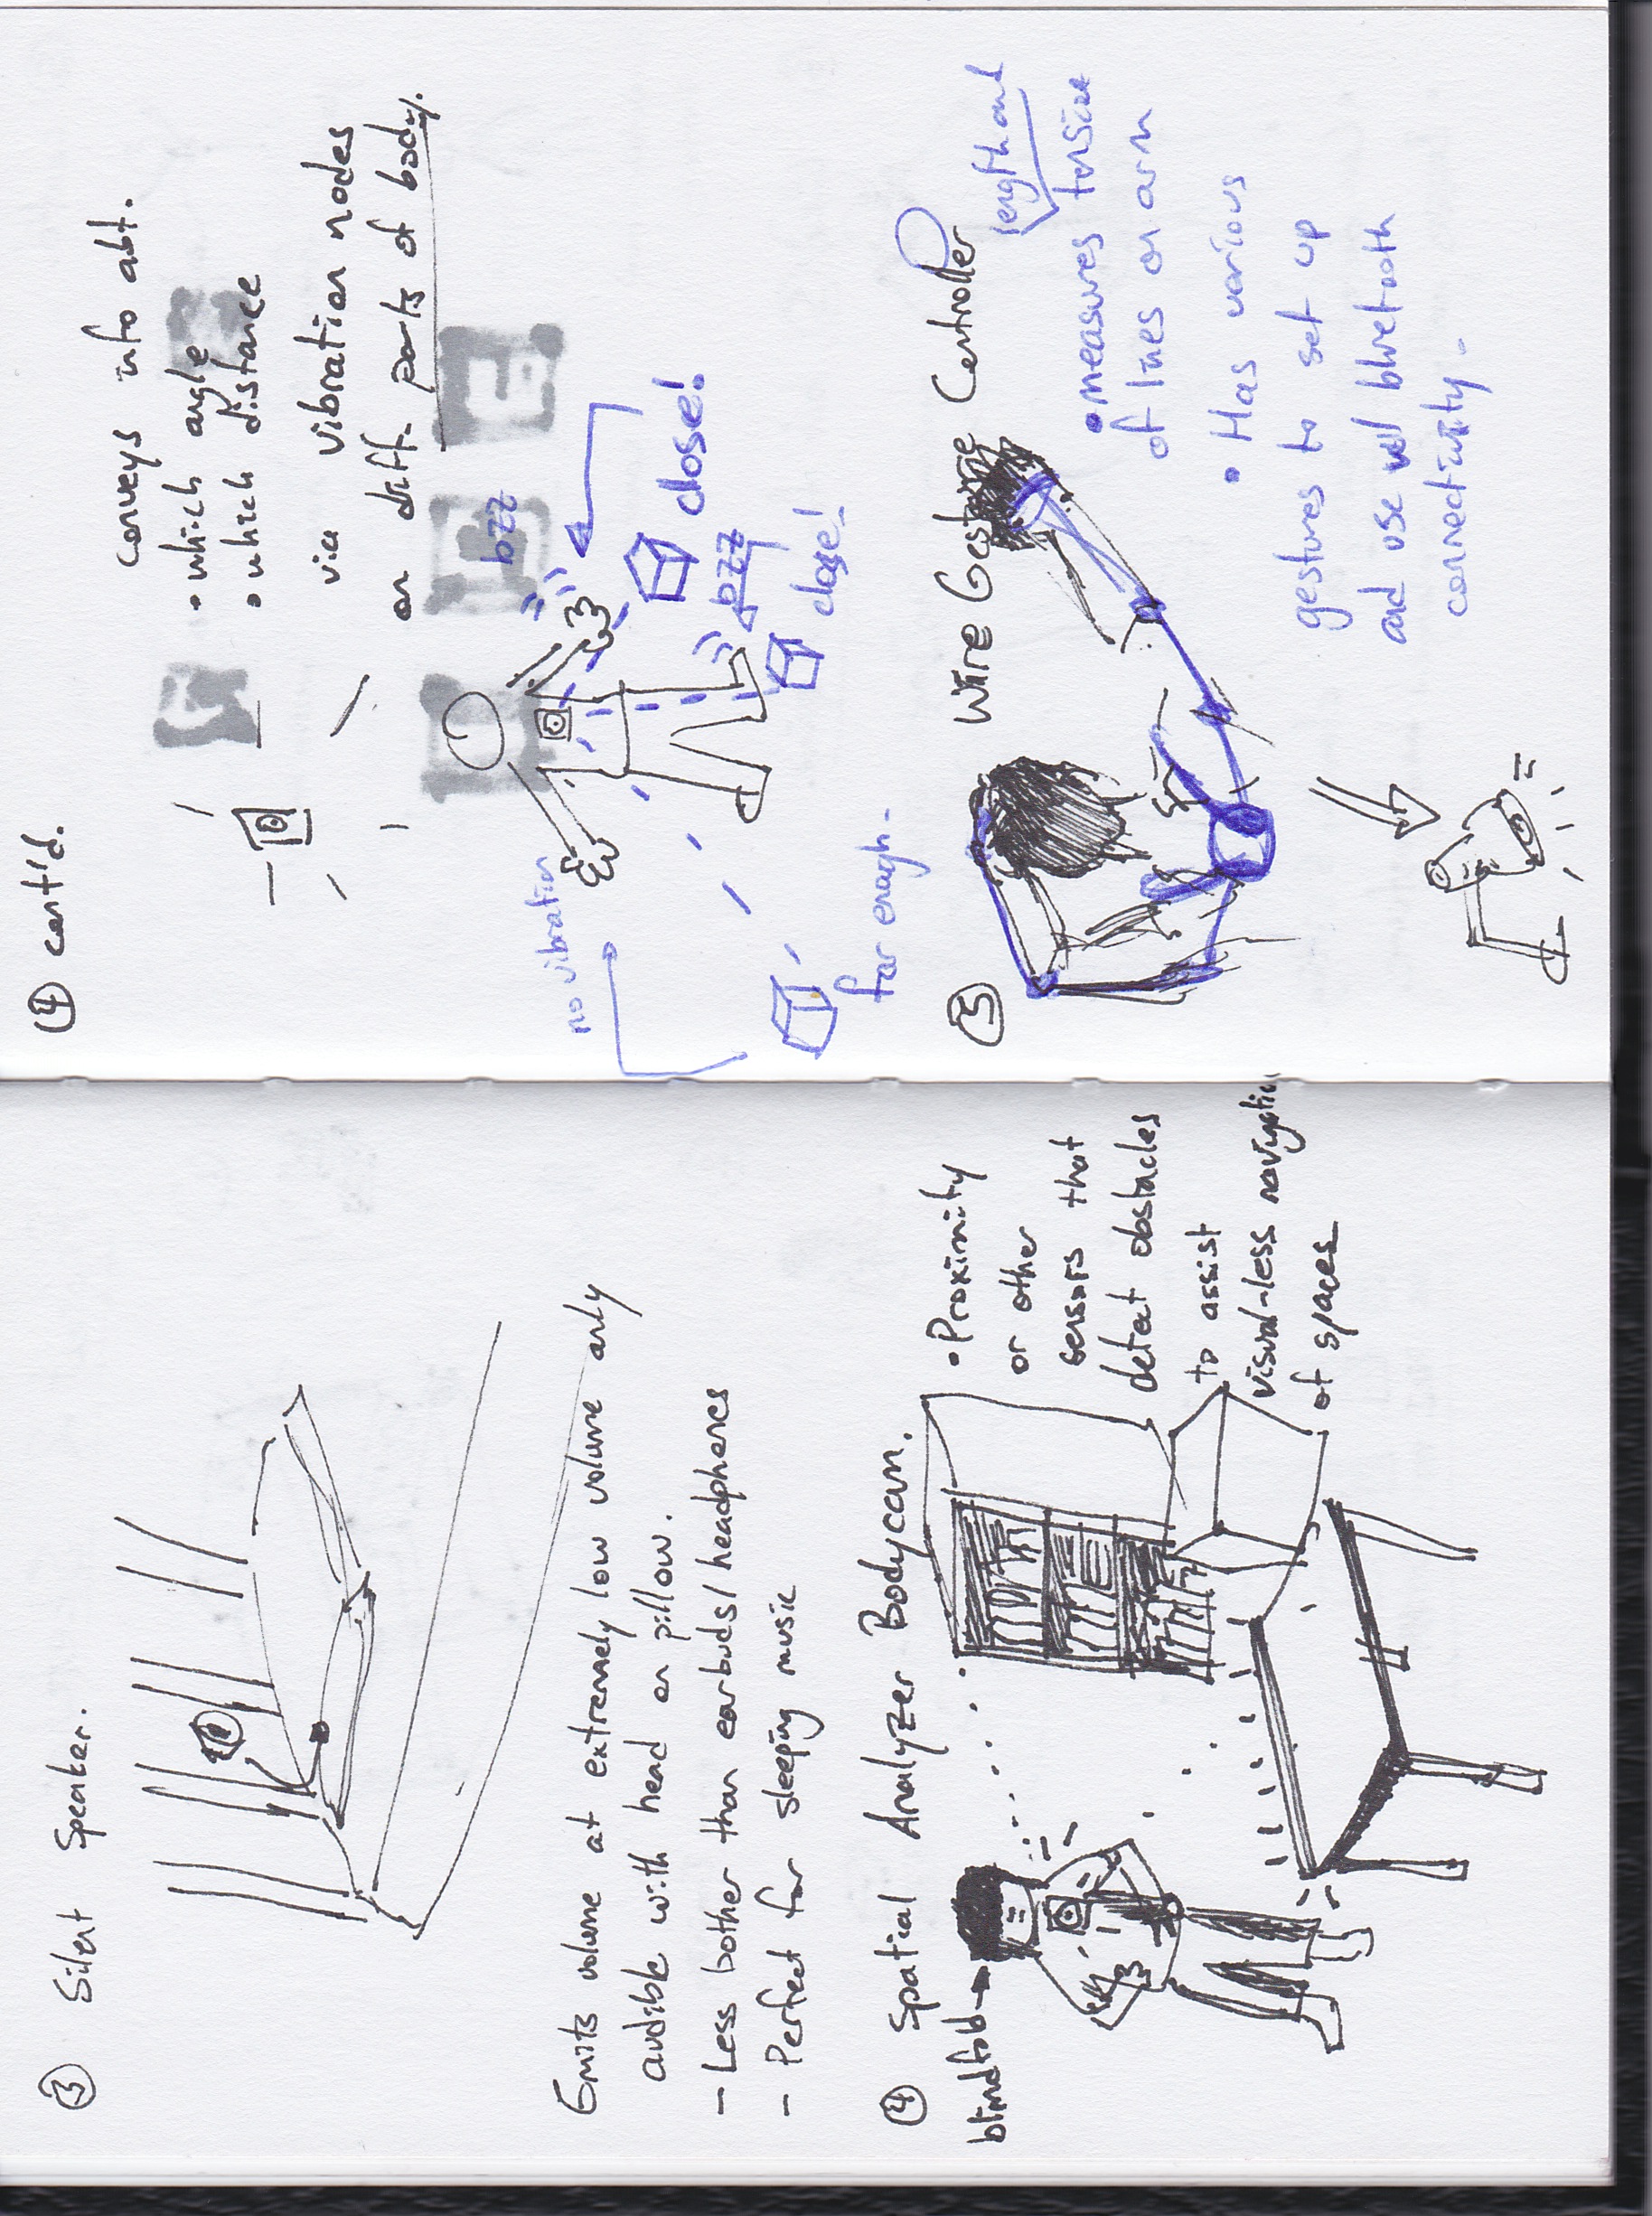 ③ Silent Speaker.
Emits volume at extremely low volume only
audible with head on pillow.
- Less bother than earbuds/headphones
- Perfect for sleeping music
④ Spatial Analyzer Bodycam.
blindfold
• Proximity
or other
sensors that
detect obstacles
to assist
visual-less navigation
of spaces
④ cont'd.
conveys info abt.
• which angle
• which distance
via vibration nodes
on diff. parts of body.
bzz
no vibration
close!
bzz
close!
far enogh.
⑤ Wire Gesture Controller
length and
• measures tension
of lines on arm
• Has various
gestures to set up
and use w/ bluetooth
connectivity.